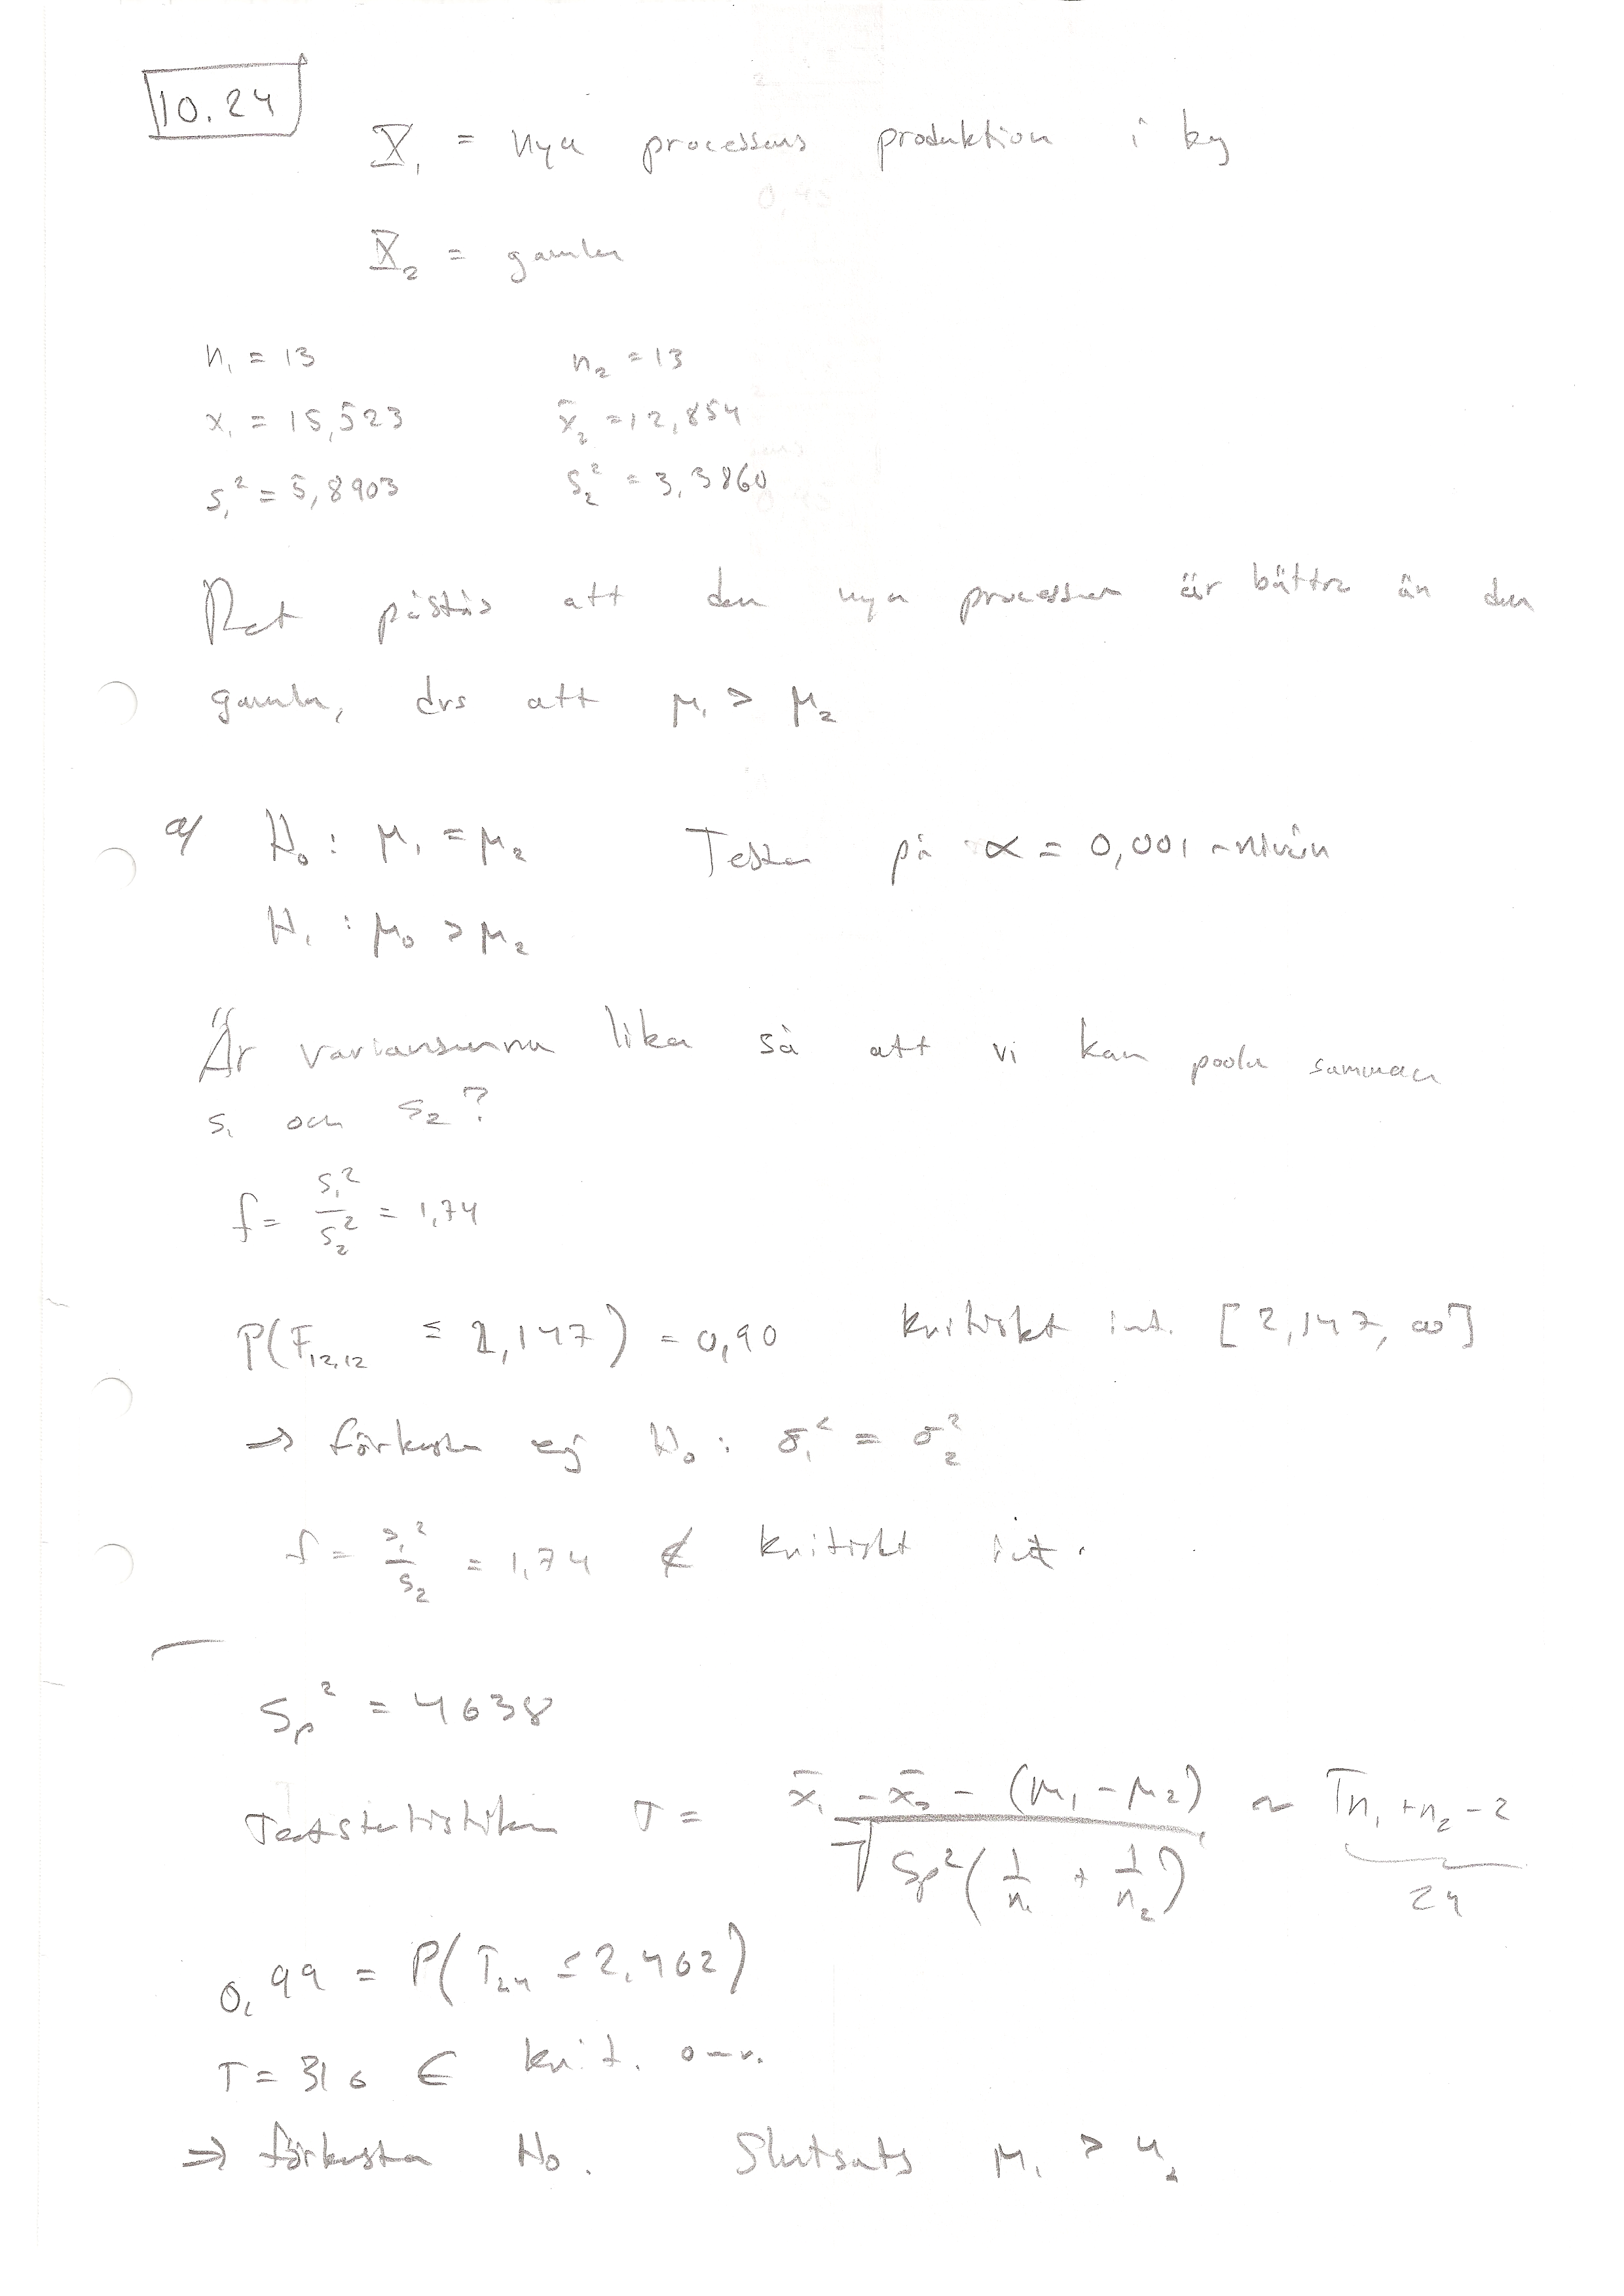 10.24
X₁ = nya processens produktion i kg
X₂ = gamla
n₁ = 13 n₂ = 13
x₁ = 15,523 x̄₂ = 12,854
s₁² = 5,8903 s₂² = 3,3860
Det påstås att den nya processen är bättre än den
gamla, dvs att μ₁ > μ₂
a) H₀ : μ₁ = μ₂ Testa på α = 0,001-nivån
H₁ : μ₀ > μ₂
Är varianserna lika så att vi kan poola samman
s₁ och s₂ ?
f = s₁²/s₂² = 1,74
P(F₁₂,₁₂ ≤ 2,147) = 0,90 kritiskt int. [2,147, ∞]
⇒ förkasta ej H₀ : σ₁² = σ₂²
f = s₁²/s₂ = 1,74 ∉ kritiskt int.
Sp² = 4638
Teststatistikan T = (x̄₁ - x̄₂ - (μ₁ - μ₂)) / √(Sp²(1/n₁ + 1/n₂)) ~ Tn₁+n₂-2
24
0,99 = P(T₂₄ ≤ 2,462)
T = 316 ∈ krit. omr.
⇒ förkasta H₀. Slutsats μ₁ > μ₂